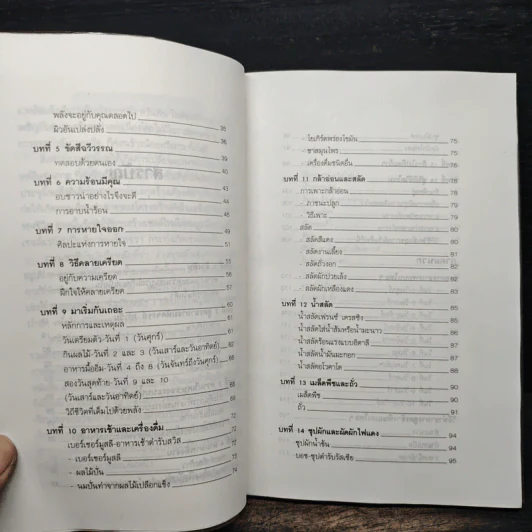 พลังจะอยู่กับคุณตลอดไป
ผิวอันเปล่งปลั่ง 35
บทที่ 5 ขัดสีฉวีวรรณ 39
ทดสอบด้วยตนเอง 40
บทที่ 6 ความร้อนมีคุณ 43
อบซาวน่าอย่างไรจึงจะดี 44
การอาบน้ำร้อน 48
บทที่ 7 การหายใจออก 49
ศิลปะแห่งการหายใจ 51
บทที่ 8 วิธีคลายเครียด 55
อยู่กับความเครียด 56
ฝึกใจให้คลายเครียด 57
บทที่ 9 มาเริ่มกันเถอะ 60
หลักการและเหตุผล 61
วันเตรียมตัว-วันที่ 1 (วันศุกร์) 61
กินผลไม้-วันที่ 2 และ 3 (วันเสาร์และวันอาทิตย์) 62
อาหารมื้ออิ่ม-วันที่ 4 ถึง 8 (วันจันทร์ถึงวันศุกร์)
สองวันสุดท้าย-วันที่ 9 และ 10
(วันเสาร์และวันอาทิตย์) 68
วิถีชีวิตที่เต็มไปด้วยพลัง
บทที่ 10 อาหารเช้าและเครื่องดื่ม 72
เบอร์เชอร์มูสลี-อาหารเช้าตำรับสวิส
- เบอร์เชอร์มูสลี
- ผลไม้ปั่น
- นมปั่นทำจากผลไม้เปลือกแข็ง 74
- โยเกิร์ตพร่องไขมัน 75
- ชาสมุนไพร 75
- เครื่องดื่มชนิดอื่น 76
บทที่ 11 กล้าอ่อนและสลัด 78
การเพาะกล้าอ่อน 78
- ภาชนะปลูก 79
- วิธีเพาะ 79
สลัด 80
- สลัดสีแดง
- สลัดจานเลี้ยง
- สลัดถั่วงอก 81
- สลัดผักปวยเล้ง 82
- สลัดผักเหลืองแดง 83
บทที่ 12 น้ำสลัด 85
น้ำสลัดเฟรนซ์ เดรสซิ่ง 85
น้ำสลัดใส่น้ำส้มหรือน้ำมะนาว
น้ำสลัดร้อนแรงแบบอิตาลี
น้ำสลัดน้ำมันมะกอก
น้ำสลัดอโวคาโด
บทที่ 13 เมล็ดพืชและถั่ว 90
เมล็ดพืช 90
ถั่ว 91
บทที่ 14 ซุปผักและผัดผักไฟแดง 94
ซุปผักน้ำข้น 94
บอช-ซุปตำรับรัสเซีย 95